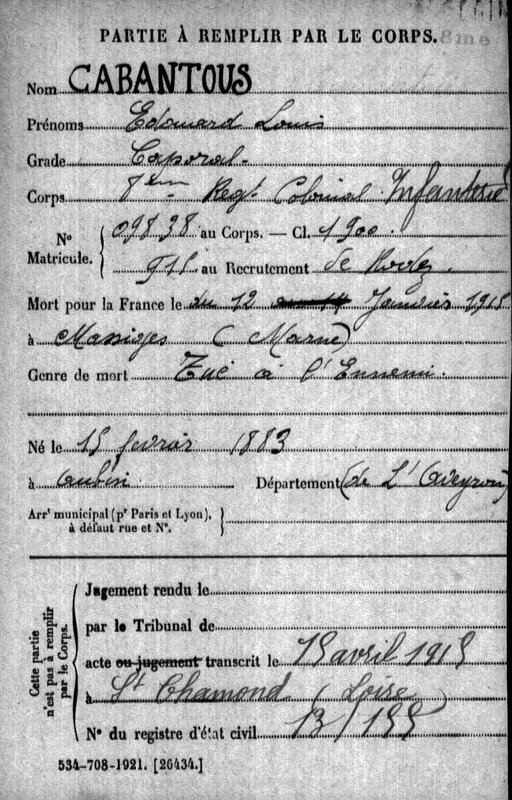 PARTIE À REMPLIR PAR LE CORPS.
8me
Nom CABANTOUS
Prénoms Edouard Louis
Grade Caporal.
Corps 8ème Regt Colonial Infanterie
N° Matricule. 09838 au Corps. — Cl. 1900
915 au Recrutement de Rodez.
Mort pour la France le du 12 au 14 Janvier 1915
à Massiges (Marne)
Genre de mort Tué à l'Ennemi.
Né le 15 fevrier 1883
à Aubin Département (de L'Aveyron)
Arrt municipal (pr Paris et Lyon),
à défaut rue et N°.
Cette partie
n'est pas à remplir
par le Corps.
Jugement rendu le
par le Tribunal de
acte ou jugement transcrit le 15 avril 1915
à St Chamond (Loire)
N° du registre d'état civil 13/155
534-708-1921. [26434.]